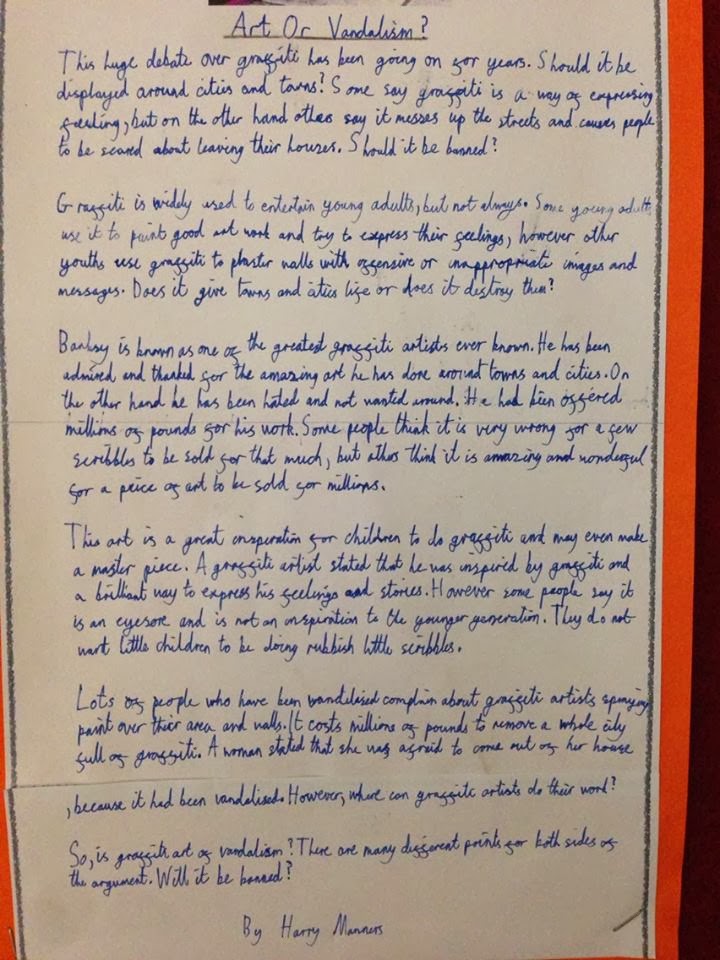 Art Or Vandalism?
This huge debate over graffiti has been going on for years. Should it be
displayed around cities and towns? Some say graffiti is a way of expressing
feeling, but on the other hand others say it messes up the streets and causes people
to be scared about leaving their houses. Should it be banned?
Graffiti is widely used to entertain young adults, but not always. Some young adults
use it to paint good art work and try to express their feelings, however other
youths use graffiti to plaster walls with offensive or inappropriate images and
messages. Does it give towns and cities life or does it destroy them?
Banksy is known as one of the greatest graffiti artists ever known. He has been
admired and thanked for the amazing art he has done around towns and cities. On
the other hand he has been hated and not wanted around. He had bien offered
millions of pounds for his work. Some people think it is very wrong for a few
scribbles to be sold for that much, but others think it is amazing and wonderful
for a peice of art to be sold for millions.
This art is a great insperation for children to do graffiti and may even make
a master piece. A graffiti artist stated that he was inspired by graffiti and
a brilliant way to express his feelings and stories. However some people say it
is an eyesore and is not an inspiration to the younger generation. They do not
want little children to be doing rubbish little scribbles.
Lots of people who have been vandelised complain about graffiti artists spraying
paint over thier area and walls. It costs millions of pounds to remove a whole city
full of graffiti. A woman stated that she was afraid to come out of her house
, because it had been vandalised. However, where can graffiti artists do their word?
So, is graffiti art of vandalism? There are many different points for both sides of
the argument. Will it be banned?
By Harry Manners